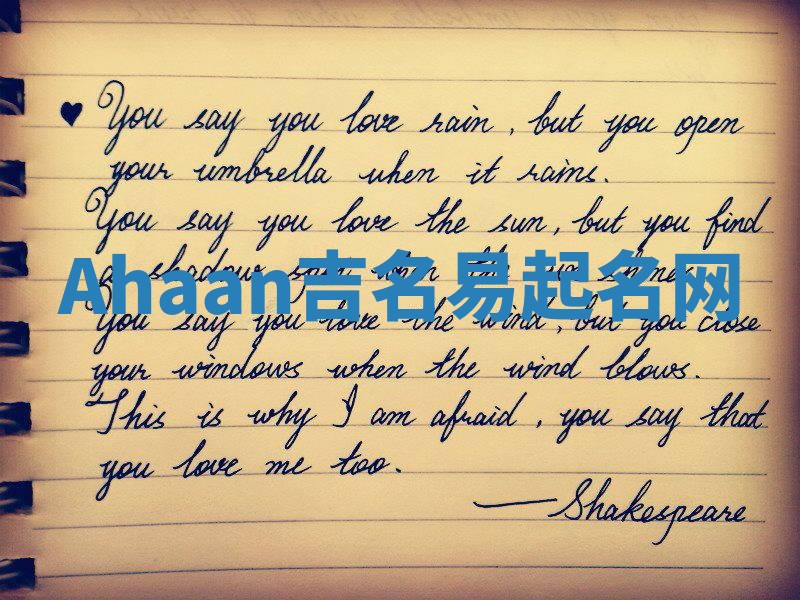 ♥ You say you love rain, but you open
your umbrella when it rains.
You say you love the sun, but you find
a shadow spot when the sun shines.
Ahaan吉名易起名网
You say you love the wind, but you close
your windows when the wind blows.
This is why I am afraid, you say that
you love me too.
—Shakespeare